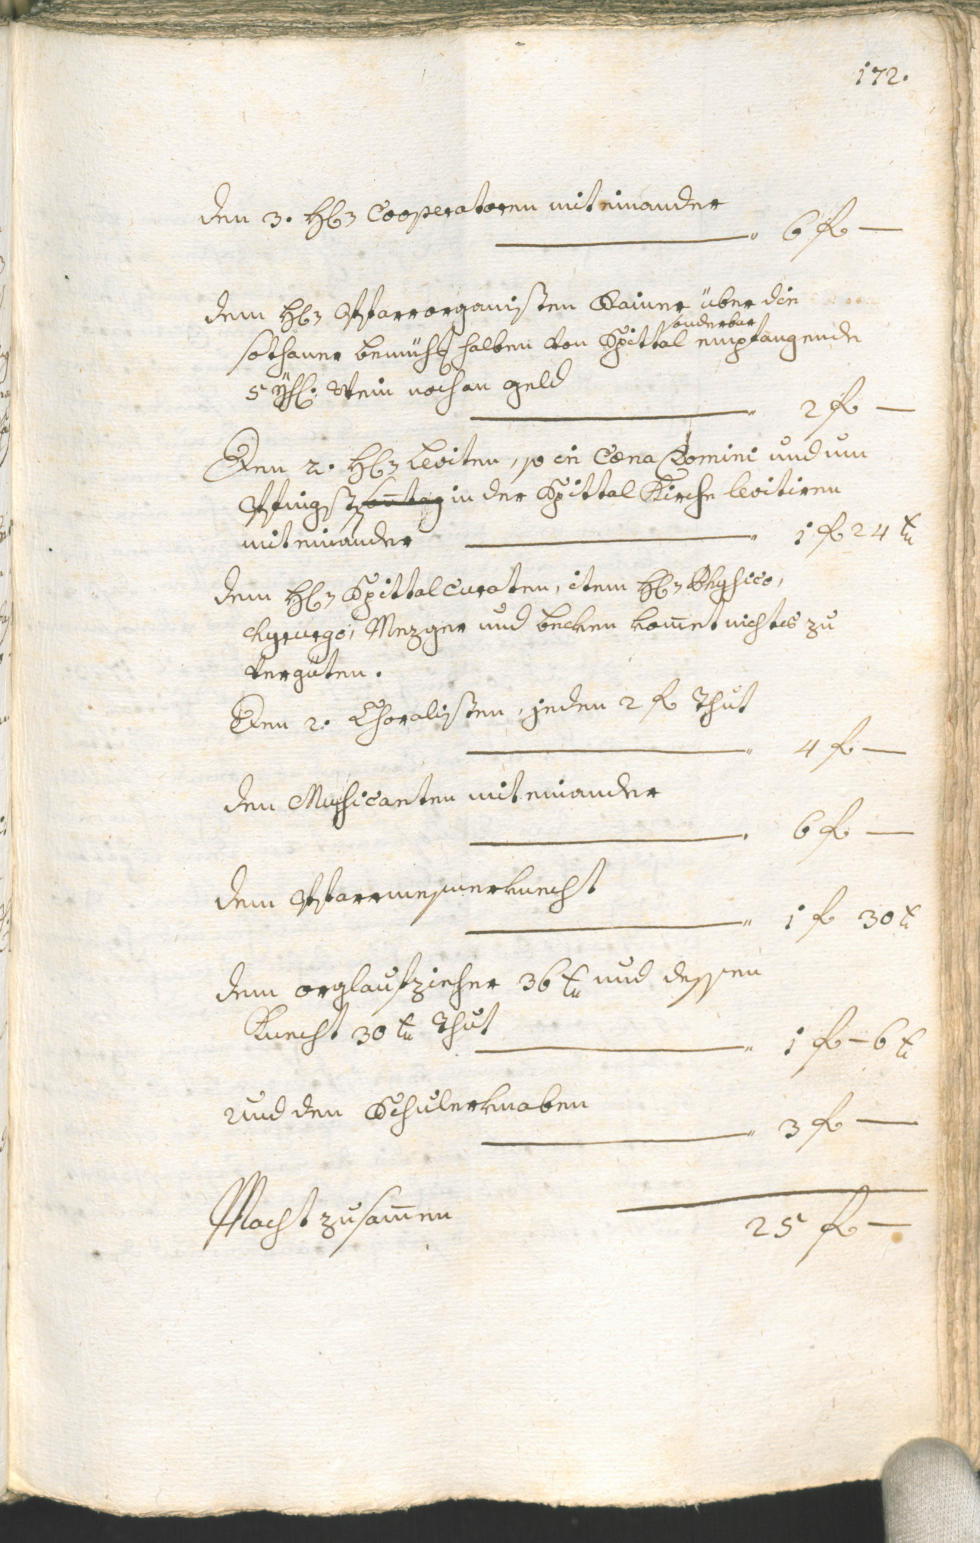 172.
den 3. H(er)n Cooperatoren miteinander
6 fl —
dem H(er)n Pfarrorganisten Rainer über die
sonderbar
sothaner bemüh(ung) halben von Spittal empfangende
5 Yh(rn) Wein noch an geld
2 fl —
Den 2. H(er)n Leviten, so in Cœna Domini und um
Pfingst sontag in der Spittal Kirche levitiren
miteinander 1 fl 24 x
dem H(er)n Spittalcuraten, item H(er)n Physico,
Chyrurgo, Mezger und becken kom̄et nichts zu
vergüten.
Den 2. Choralisten, jeden 2 fl thut
4 fl —
den Musicanten miteinander
6 fl —
dem Pfarrmesnerknecht
1 fl 30 x
dem orglaufzieher 36 x und dessen
Knecht 30 x thut
1 fl — 6 x
und den Schulerknaben
3 fl —
Macht zusam̄en
25 fl —